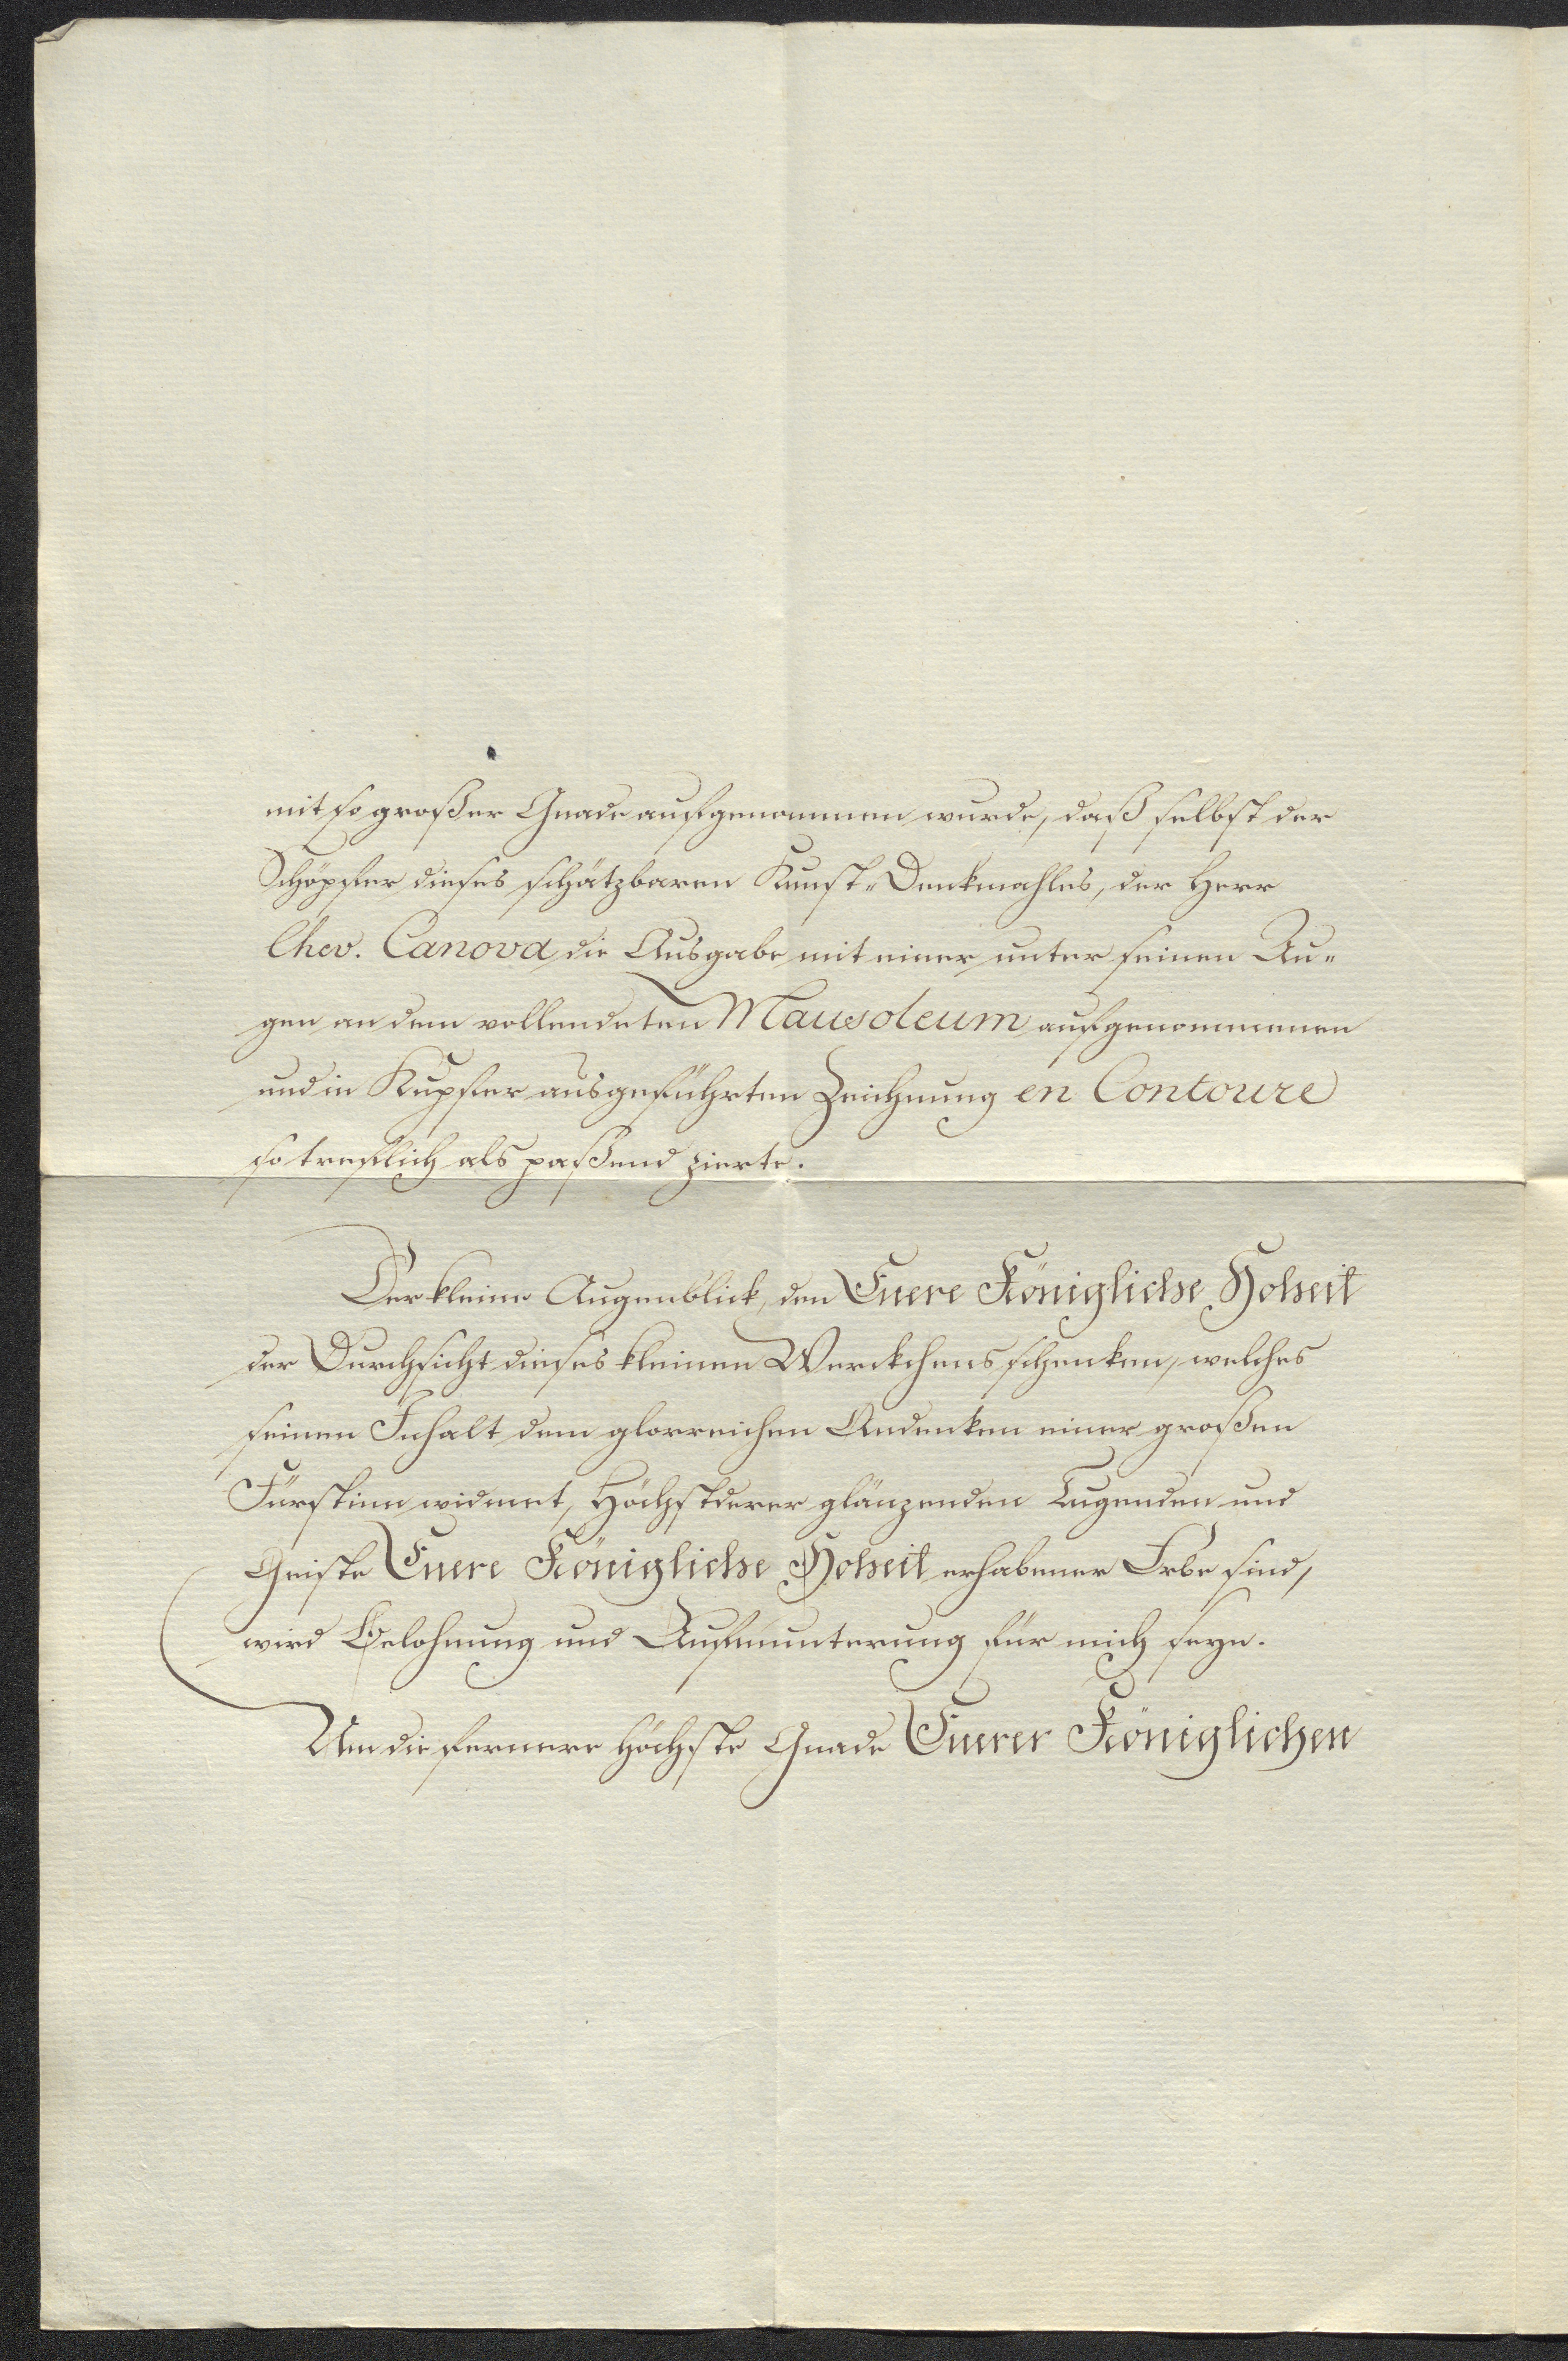 mit so großer Gnade aufgenommen wurde, daß selbst der
Schöpfer dieses schätzbaren Kunst-Denkmahles, der Herr
Chev. Canova die Ausgabe mit einer unter seinen Au-
gen an dem vollendeten Mausoleum aufgenommenen
und in Kupfer ausgeführten Zeichnung en Contoure
so treflich als paßend zierte.
Der kleine Augenblick, den Euere Königliche Hoheit
der Durchsicht dieses kleinen Werckchens schenken, welches
seinen Inhalt dem glorreichen Andenken einer großen
Fürstinn widmet, Höchstderer glänzenden Tugenden und
Geiste Euere Königliche Hoheit erhabener Erbe sind,
wird Belohnung und Aufmunterung für mich seyn.
Um die fernere höchste Gnade Euerer Königlichen